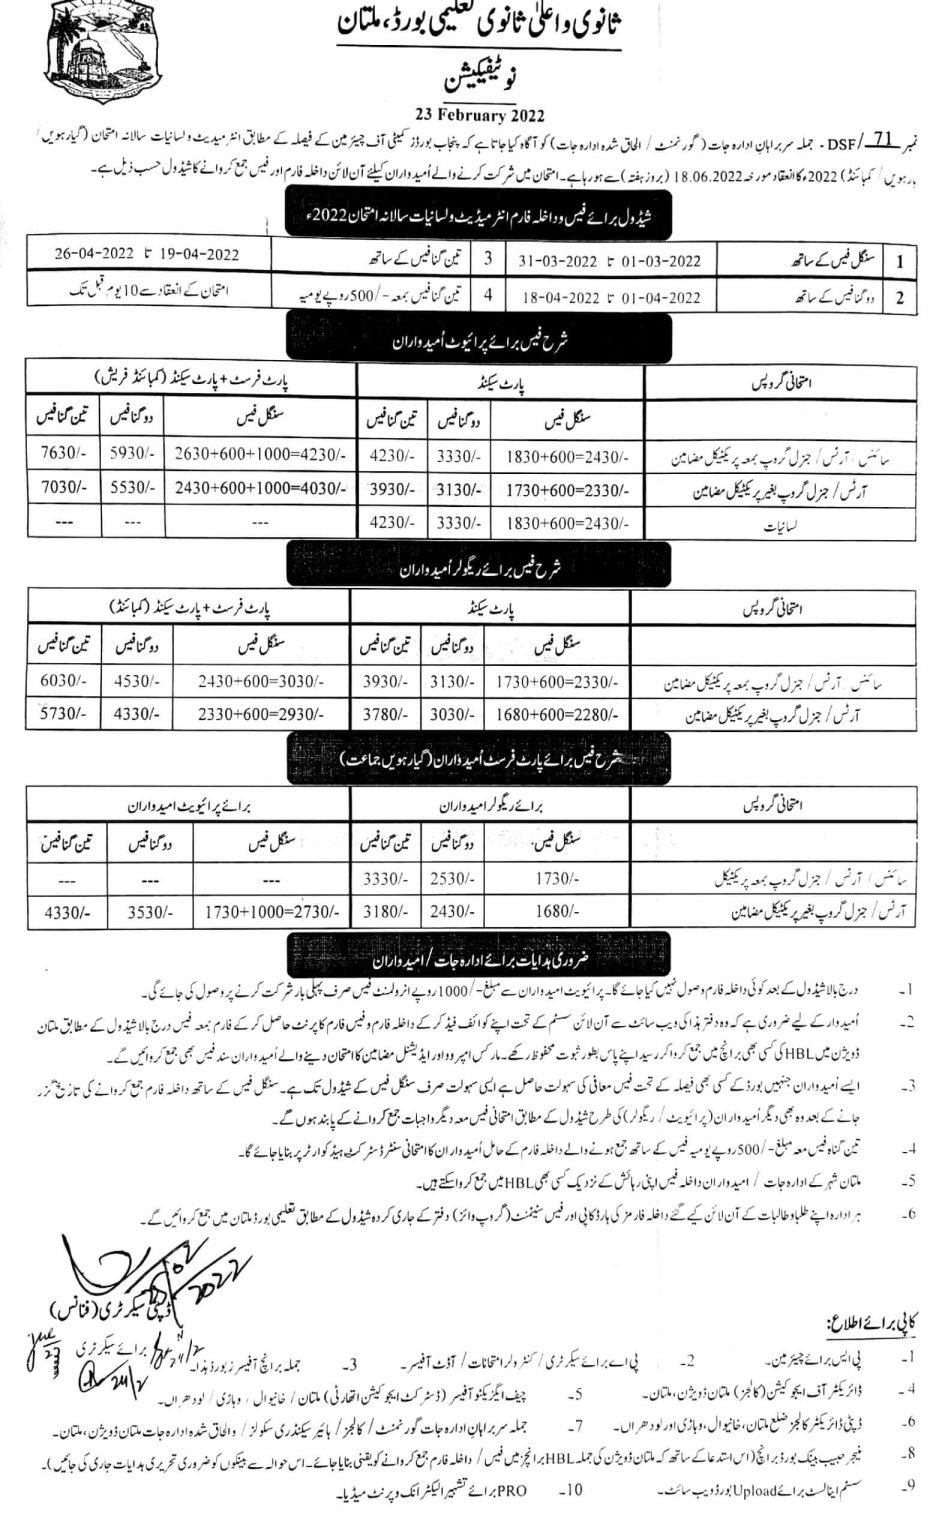 ثانوی و اعلیٰ ثانوی تعلیمی بورڈ، ملتان
نوٹیفکیشن
23 February 2022
نمبر DSF/ 71 - جملہ سربراہان ادارہ جات (گورنمنٹ / الحاق شدہ ادارہ جات) کو آگاہ کیا جاتا ہے کہ پنجاب بورڈز کمیٹی آف چیئرمین کے فیصلہ کے مطابق انٹرمیڈیٹ و لسانیات سالانہ امتحان (گیارہویں /
بارہویں / کمبائنڈ) 2022ء کا انعقاد مورخہ 18.06.2022 (بروز ہفتہ) سے ہو رہا ہے۔ امتحان میں شرکت کرنے والے اُمیدواران کیلئے آن لائن داخلہ فارم اور فیس جمع کروانے کا شیڈول حسب ذیل ہے۔
شیڈول برائے فیس و داخلہ فارم انٹرمیڈیٹ و لسانیات سالانہ امتحان 2022ء
1 سنگل فیس کے ساتھ 01-03-2022 تا 31-03-2022 3 تین گنا فیس کے ساتھ 19-04-2022 تا 26-04-2022
2 دوگنا فیس کے ساتھ 01-04-2022 تا 18-04-2022 4 تین گنا فیس بمعہ -/500 روپے یومیہ امتحان کے انعقاد سے 10 یوم قبل تک
شرح فیس برائے پرائیوٹ اُمیدواران
امتحانی گروپس پارٹ سیکنڈ پارٹ فرسٹ + پارٹ سیکنڈ (کمبائنڈ فریش)
سنگل فیس دوگنا فیس تین گنا فیس سنگل فیس دوگنا فیس تین گنا فیس
سائنس / آرٹس / جنرل گروپ بمعہ پریکٹیکل مضامین 1830+600=2430/- 3330/- 4230/- 2630+600+1000=4230/- 5930/- 7630/-
آرٹس / جنرل گروپ بغیر پریکٹیکل مضامین 1730+600=2330/- 3130/- 3930/- 2430+600+1000=4030/- 5530/- 7030/-
لسانیات 1830+600=2430/- 3330/- 4230/- --- --- ---
شرح فیس برائے ریگولر اُمیدواران
امتحانی گروپس پارٹ سیکنڈ پارٹ فرسٹ + پارٹ سیکنڈ (کمبائنڈ)
سنگل فیس دوگنا فیس تین گنا فیس سنگل فیس دوگنا فیس تین گنا فیس
سائنس / آرٹس / جنرل گروپ بمعہ پریکٹیکل مضامین 1730+600=2330/- 3130/- 3930/- 2430+600=3030/- 4530/- 6030/-
آرٹس / جنرل گروپ بغیر پریکٹیکل مضامین 1680+600=2280/- 3030/- 3780/- 2330+600=2930/- 4330/- 5730/-
شرح فیس برائے پارٹ فرسٹ اُمیدواران (گیارہویں جماعت)
امتحانی گروپس برائے ریگولر امیدواران برائے پرائیویٹ امیدواران
سنگل فیس دوگنا فیس تین گنا فیس سنگل فیس دوگنا فیس تین گنا فیس
سائنس / آرٹس / جنرل گروپ بمعہ پریکٹیکل 1730/- 2530/- 3330/- --- --- ---
آرٹس / جنرل گروپ بغیر پریکٹیکل مضامین 1680/- 2430/- 3180/- 1730+1000=2730/- 3530/- 4330/-
ضروری ہدایات برائے ادارہ جات / امیدواران
1- درج بالا شیڈول کے بعد کوئی داخلہ فارم وصول نہیں کیا جائے گا۔ پرائیویٹ امیدواران سے مبلغ -/1000 روپے انرولمنٹ فیس صرف پہلی بار شرکت کرنے پر وصول کی جائے گی۔
2- اُمیدوار کے لیے ضروری ہے کہ وہ دفتر ہذا کی ویب سائٹ سے آن لائن سسٹم کے تحت اپنے کوائف فیڈ کر کے داخلہ فارم و فیس فارم کا پرنٹ حاصل کر کے فارم بمعہ فیس درج بالا شیڈول کے مطابق ملتان
ڈویژن میں HBL کی کسی بھی برانچ میں جمع کروا کر رسید اپنے پاس بطور ثبوت محفوظ رکھے۔ مارکس امپروو اور ایڈیشنل مضامین کا امتحان دینے والے اُمیدواران سند فیس بھی جمع کروائیں گے۔
3- ایسے اُمیدواران جنہیں بورڈ کے کسی بھی فیصلہ کے تحت فیس معافی کی سہولت حاصل ہے ایسی سہولت صرف سنگل فیس کے شیڈول تک ہے۔ سنگل فیس کے ساتھ داخلہ فارم جمع کروانے کی تاریخ گزر
جانے کے بعد وہ بھی دیگر اُمیدواران (پرائیویٹ / ریگولر) کی طرح شیڈول کے مطابق امتحانی فیس معہ دیگر واجبات جمع کروانے کے پابند ہوں گے۔
4- تین گناہ فیس معہ مبلغ -/500 روپے یومیہ فیس کے ساتھ جمع ہونے والے داخلہ فارم کے حامل اُمیدواران کا امتحانی سنٹر ڈسٹرکٹ ہیڈ کوارٹر پر بنایا جائے گا۔
5- ملتان شہر کے ادارہ جات / امیدواران داخلہ فیس اپنی رہائش کے نزدیک کسی بھی HBL میں جمع کرواسکتے ہیں۔
6- ہر ادارہ اپنے طلبا و طالبات کے آن لائن کیے گئے داخلہ فارمز کی ہارڈ کاپی اور فیس سٹیٹمنٹ (گروپ وائز) دفتر کے جاری کردہ شیڈول کے مطابق تعلیمی بورڈ ملتان میں جمع کروائیں گے۔
ڈپٹی سیکرٹری (فنانس)
برائے سیکرٹری
کاپی برائے اطلاع:
1- پی ایس برائے چیئرمین۔ 2- پی اے برائے سیکرٹری / کنٹرولر امتحانات / آڈٹ آفیسر۔ 3- جملہ برانچ آفیسرز بورڈ ہذا۔
4- ڈائریکٹر آف ایجوکیشن (کالجز) ملتان ڈویژن، ملتان۔ 5- چیف ایگزیکٹو آفیسر (ڈسٹرکٹ ایجوکیشن اتھارٹی) ملتان / خانیوال / وہاڑی / لودھراں۔
6- ڈپٹی ڈائریکٹر کالجز ضلع ملتان، خانیوال، وہاڑی اور لودھراں۔ 7- جملہ سربراہان ادارہ جات گورنمنٹ / کالجز / ہائیر سیکنڈری سکولز / و الحاق شدہ ادارہ جات ملتان ڈویژن، ملتان۔
8- منیجر حبیب بینک بورڈ برانچ (اس استدعا کے ساتھ کہ ملتان ڈویژن کی جملہ HBL برانچز میں فیس / داخلہ فارم جمع کروانے کو یقینی بنایا جائے۔ اس حوالہ سے بینکوں کو ضروری تحریری ہدایات جاری کی جائیں)۔
9- سسٹم اینالسٹ برائے Upload بورڈ ویب سائٹ۔ 10- PRO برائے تشہیر الیکٹرانک و پرنٹ میڈیا۔